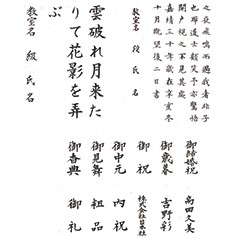 之夜飛鳴而過我者非子
也耶道士顧笑予亦驚悟
開戸視之不見其處
嘉靖三十年歳在辛亥冬
十月既望後二日書
教室名 段 氏名
雲破れ月来た
りて花影を弄
ぶ
教室名 級 氏名
御結婚祝 高田久美
御歳暮 吉野彰
御祝 株式会社
御中元 内祝
御見舞 粗品
御香典 御礼